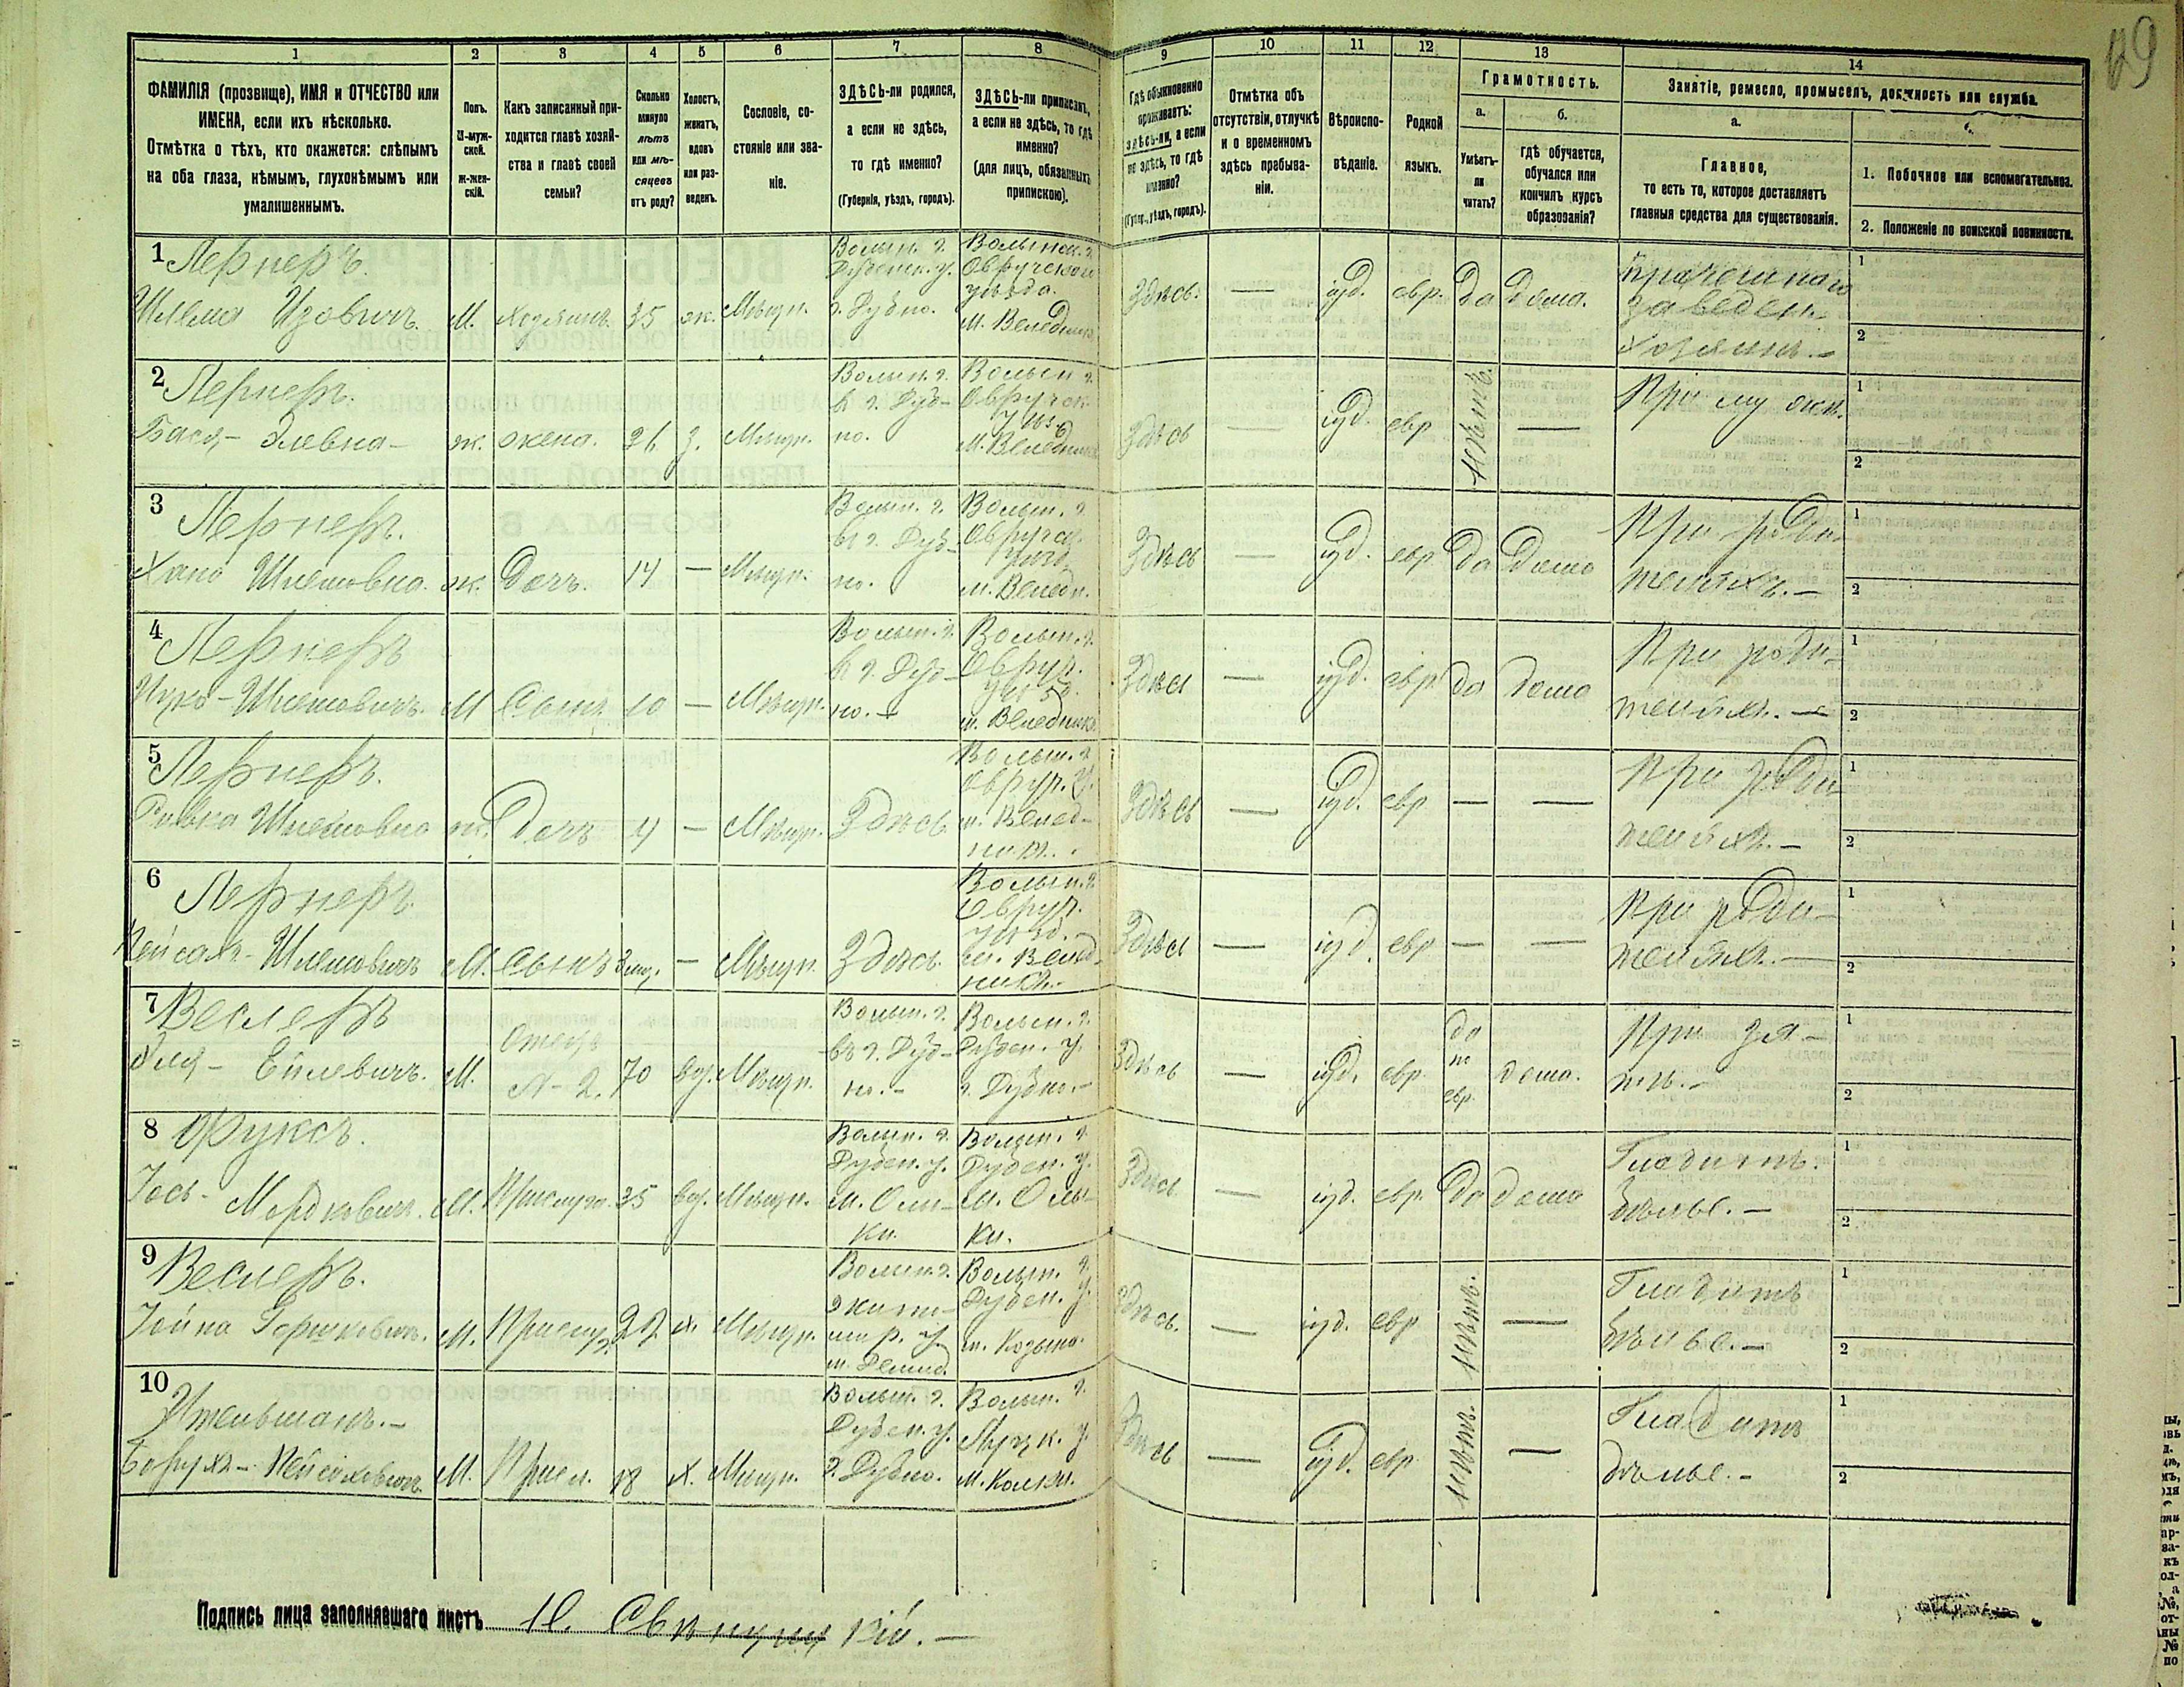 69
1 2 3 4 5 6 7 8 9 10 11 12 13 14
ФАМИЛІЯ (прозвище), ИМЯ и ОТЧЕСТВО или
ИМЕНА, если ихъ нѣсколько.
Отмѣтка о тѣхъ, кто окажется: слѣпымъ
на оба глаза, нѣмымъ, глухонѣмымъ или
умалишеннымъ.
Полъ.
М-муж-
ской.
ж-жен-
скій.
Какъ записанный при-
ходится главѣ хозяй-
ства и главѣ своей
семьи?
Сколько
минуло
лѣтъ
или мѣ-
сяцевъ
отъ роду?
Холостъ,
женатъ,
вдовъ
или раз-
веденъ.
Сословіе, со-
стояніе или зва-
ніе.
ЗДѢСЬ-ли родился,
а если не здѣсь,
то гдѣ именно?
(Губернія, уѣздъ, городъ).
ЗДѢСЬ-ли приписанъ,
а если не здѣсь, то гдѣ
именно?
(для лицъ, обязанныхъ
припискою).
Гдѣ обыкновенно
проживаетъ:
здѣсь-ли, а если
не здѣсь, то гдѣ
именно?
(Губер., уѣздъ, городъ).
Отмѣтка объ
отсутствіи, отлучкѣ
и о временномъ
здѣсь пребыва-
ніи.
Вѣроиспо-
вѣданіе.
Родной
языкъ.
Грамотность.
а.
Умѣетъ-
ли
читать?
б.
гдѣ обучается,
обучался или
кончилъ курсъ
образованія?
Занятіе, ремесло, промыселъ, должность или служба.
а.
Главное,
то есть то, которое доставляетъ
главныя средства для существованія.
1. Побочное или вспомогательное.
2. Положеніе по воинской повинности.
1 Лернеръ.
Шлема Ицовичъ. М. Хозяинъ. 35 ж. Мѣщн.
г. Дубно.
Волынск. г.
Овручскаго
уѣзда.
м. Веледники
Здѣсь. — іуд. евр. да дома.
Прачешнаго
заведен.
Хозяинъ. —
1
2
2 Лернеръ.
Бася - Элевна - ж. жена. 36 з. Мѣщн.
Волын. г.
въ г. Дуб-
но.
Здѣсь — іуд. евр. нѣтъ. —
При муж.
1
2
3 Лернеръ.
Хана Шлемовна. ж. Дочь. 14 — Мѣщн.
Волын. г.
въ г. Дуб-
но.
Волын. г.
м. Веледн.
Здѣсь — іуд. евр. да дома
При роди-
теляхъ. —
1
2
4 Лернеръ
Ицко - Шлемовичъ. М Сынъ 10 — Мѣщн.
Волын. г.
въ г. Дуб-
но. —
Волын. г.
Овруч.
уѣзд.
м. Веледники
Здѣсь — іуд. евр. да дома
При роди-
теляхъ. —
1
2
5 Лернеръ.
Ривка Шлемовна ж. Дочь 4 — Мѣщн. Здѣсь.
Волын. г.
Овруч. у.
м. Велед-
ники.
Здѣсь — іуд. евр — —
При роди
теляхъ. —
1
2
6 Лернеръ
Пейсахъ - Шлемовичъ М. Сынъ 3 мц. — Мѣщн. Здѣсь.
Волын. г.
Овруч.
уѣзд.
м. Велед-
ники.
Здѣсь — іуд. евр — —
При роди-
теляхъ. —
1
2
7 Веслеръ
М. Отецъ
№ 2. 70 вд. Мѣщн.
Волын. г.
въ г. Дуб-
но. -
Волын. г.
Дубен. у.
г. Дубно. -
Здѣсь — іуд. евр.
да
по
евр.
дома.
При зя-
тѣ. -
1
2
8 Фуксъ.
Іось - Мордковичъ. М. Прислуга. 35 вд. Мѣщн.
Волын. г.
Дубен. у.
м. Олы-
ки.
Волын. г.
Дубен. у.
м. Олы-
ки.
Здѣсь — іуд. евр. да дома
Гладитъ
бѣлье. —
1
2
9 Веслеръ.
Іойна Гершковичъ. М. Прислуг. х. Мѣщн.
Волын. г.
Волын. г.
Дубен. у.
м. Козина.
Здѣсь. — іуд. евр нѣтъ. —
Гладитъ
бѣлье. —
1
2
10
Борухъ - Пейсаховичъ. М. Присл. 18 х. Мѣщн.
Волын. г.
Дубен. у.
г. Дубно.
Волын. г.
Луцк. у.
м. Колки.
Здѣсь — іуд. евр. нѣтъ. —
Гладитъ
бѣлье. -
1
2
Подпись лица заполнявшаго листъ